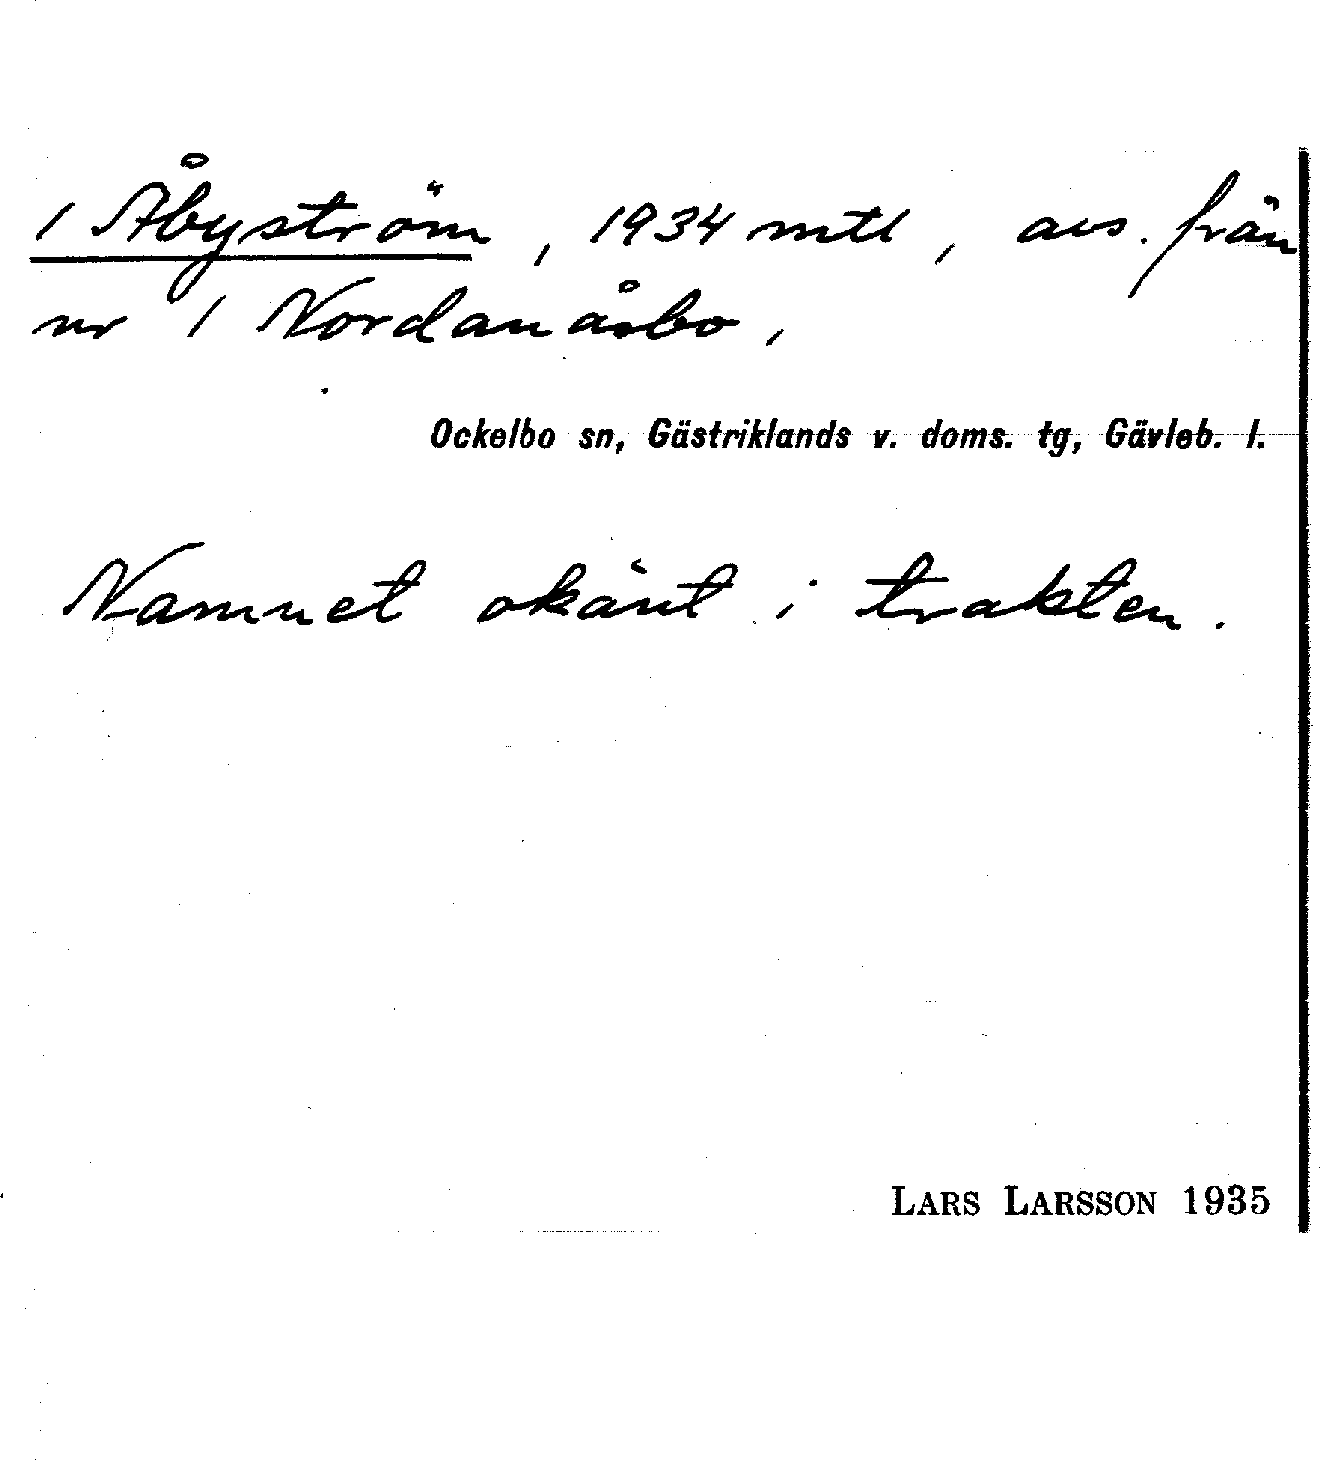 1 Åbyström, 1934 mtl, avs. från
nr 1 Nordanåsbo,
Ockelbo sn, Gästriklands v. doms. tg, Gävleb. l.
Namnet okänt i trakten.
LARS LARSSON 1935